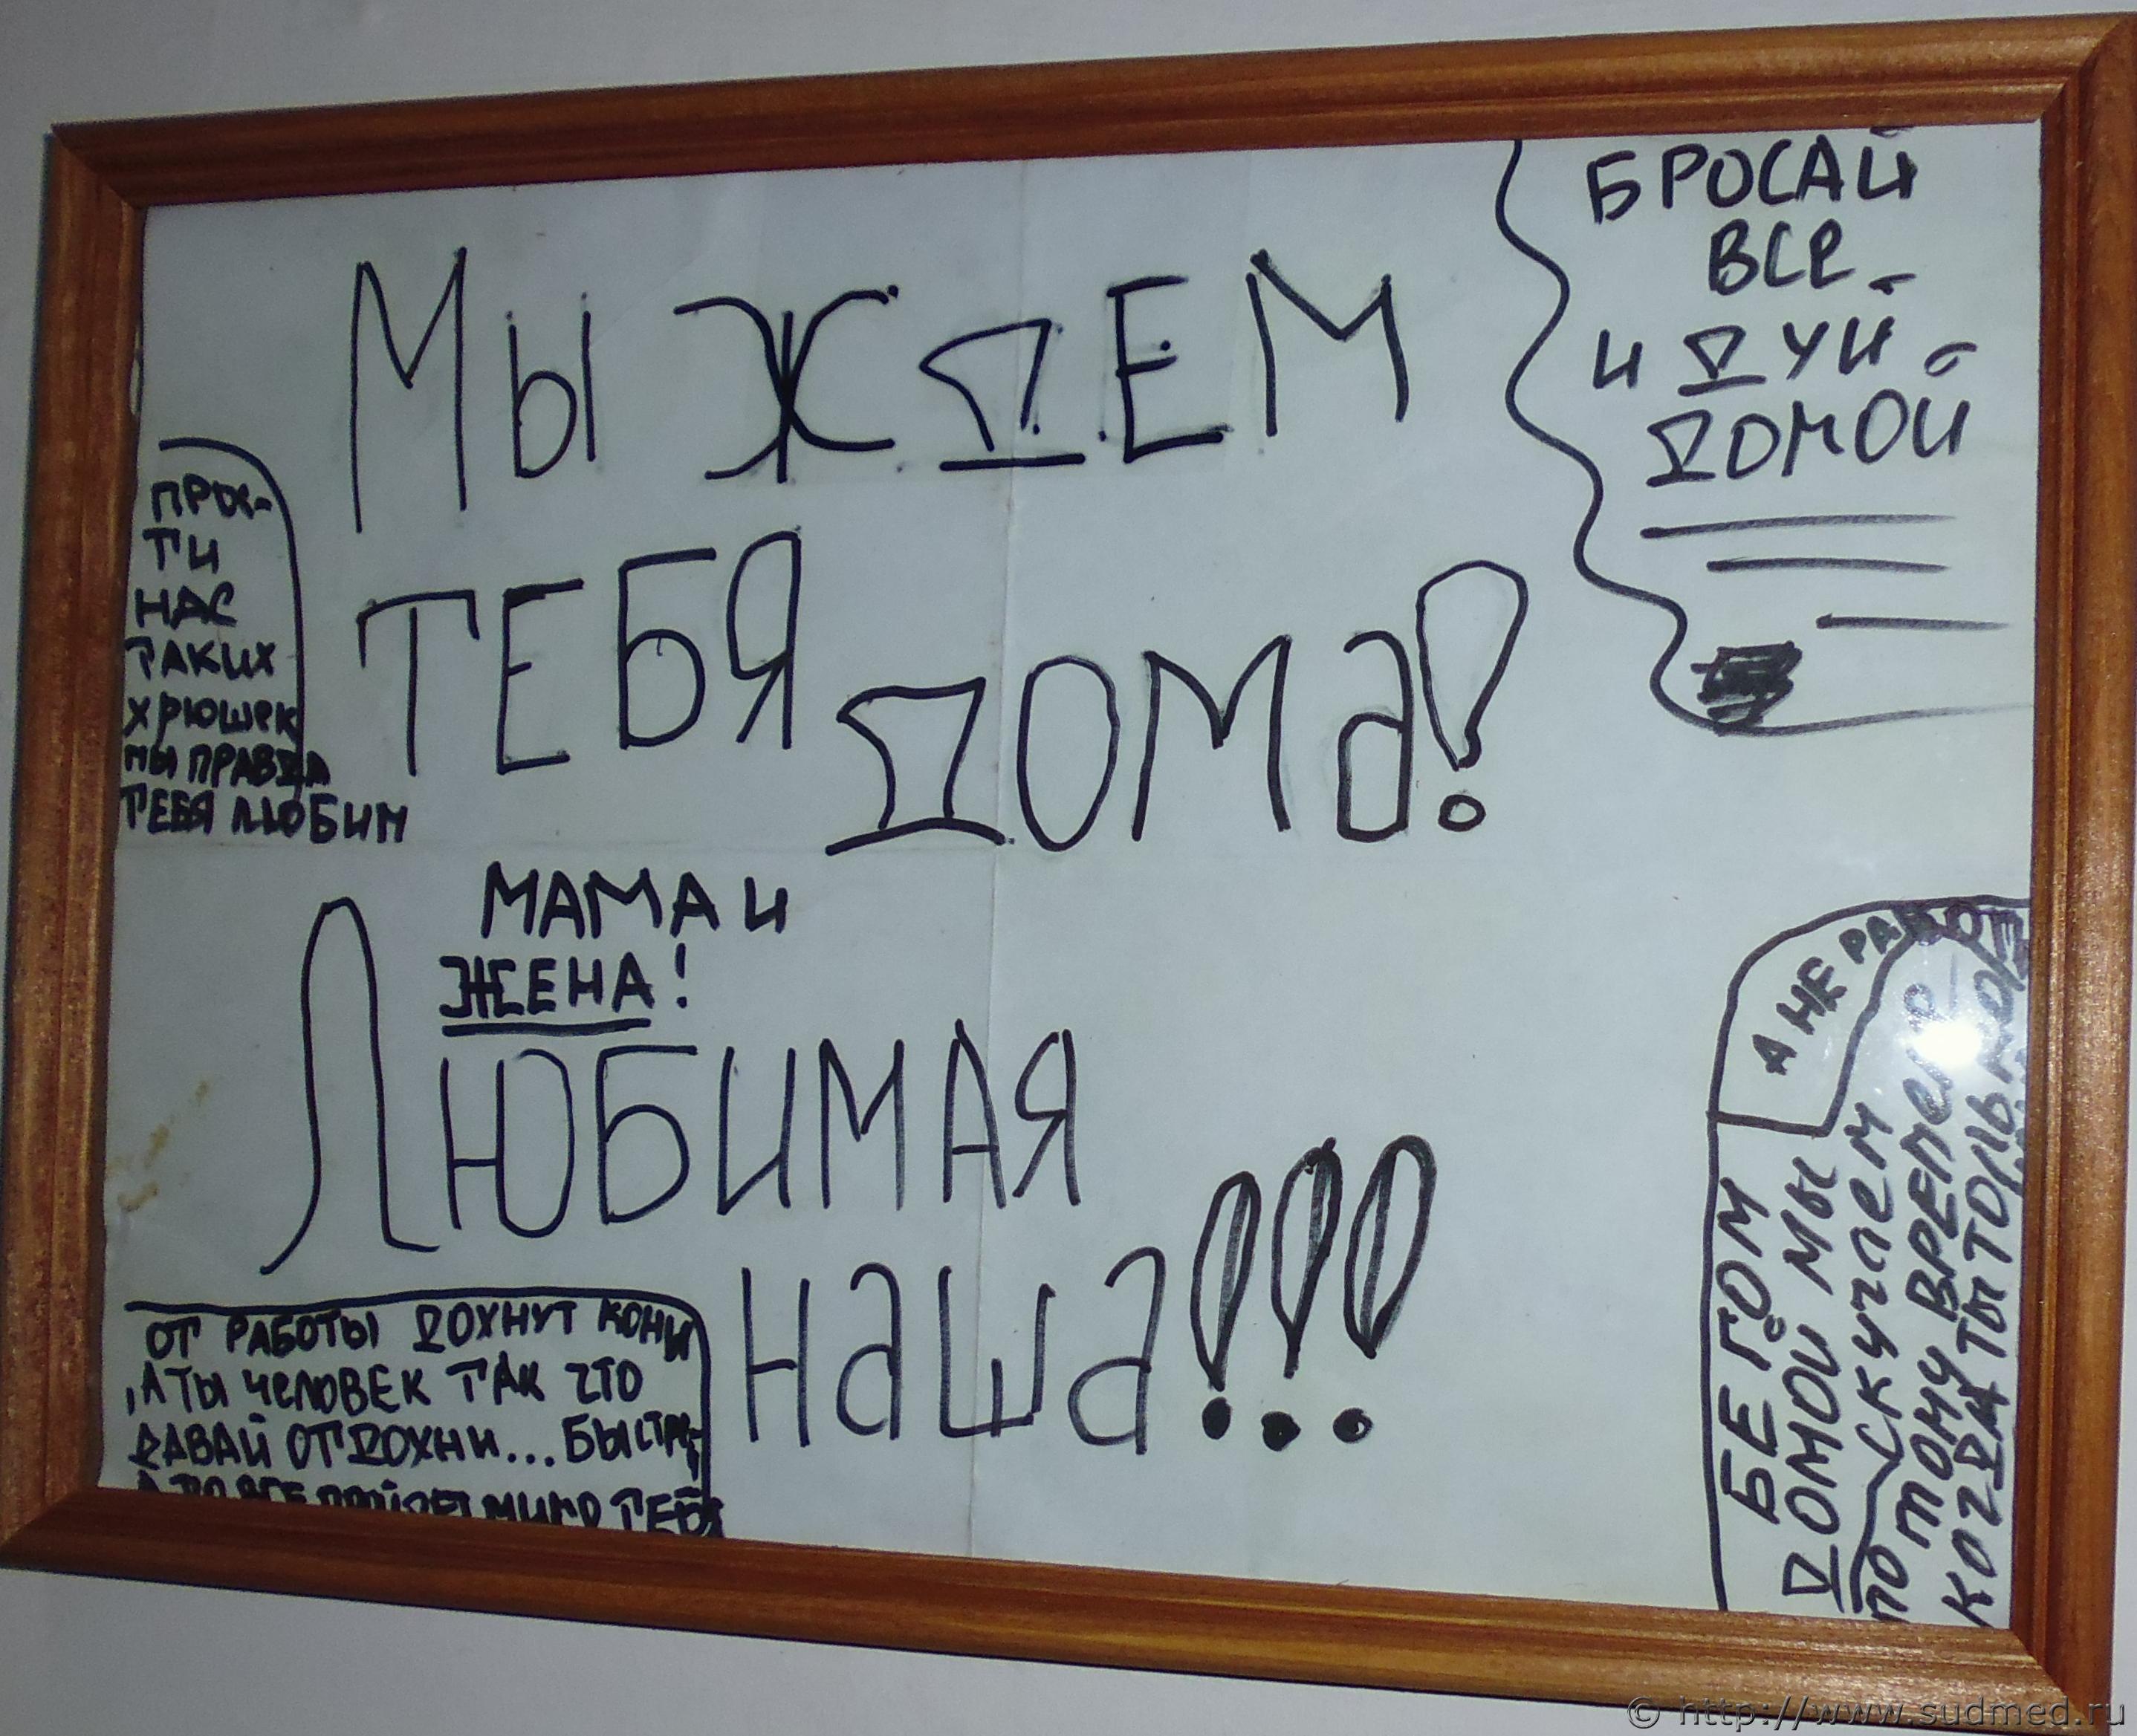 Мы ЖДЕМ
ТЕБЯ
ДОМа!
МАМА и
ЖЕНА!
ЛЮБИМАЯ
наша!!!
БРОСАЙ
ВСЕ
и ДУЙ
ДОМОЙ
ПРОС-
ТИ
НАС
ТАКИХ
ХРЮШЕК
МЫ ПРАВДА
ТЕБЯ ЛЮБИМ
ОТ РАБОТЫ ДОХНУТ КОНИ
,А ТЫ ЧЕЛОВЕК ТАК ЧТО
ДАВАЙ ОТДОХНИ...
А ТО ВСЕ ПРОЙДЕТ МИМО ТЕБЯ
А НЕ
БЕГОМ
ДОМОЙ МЫ
СКУЧАЕМ
ПО ТОМУ ВРЕМЕНИ
КОГДА ТЫ
© http://www.sudmed.ru